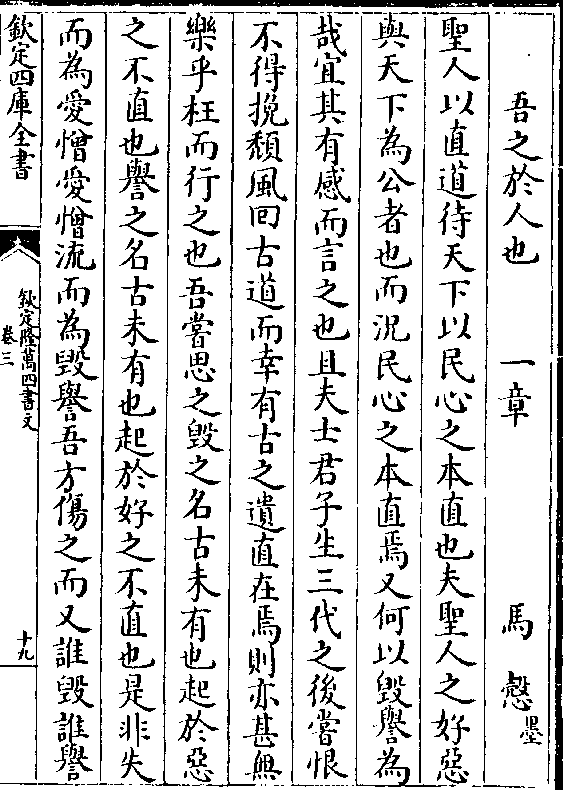 吾之於人也　一章　馬愨墨
聖人以直道待天下以民心之本直也夫聖人之好惡
與天下為公者也而況民心之本直焉又何以毀譽為
哉宜其有感而言之也且夫士君子生三代之後嘗恨
不得挽頽風回古道而幸有古之遺直在焉則亦甚無
樂乎枉而行之也吾嘗思之毀之名古未有也起於惡
之不直也譽之名古未有也起於好之不直也是非失
而為愛憎愛憎流而為毀譽吾方傷之而又誰毀誰譽
欽定四庫全書
欽定隆萬四書文
卷三
十九